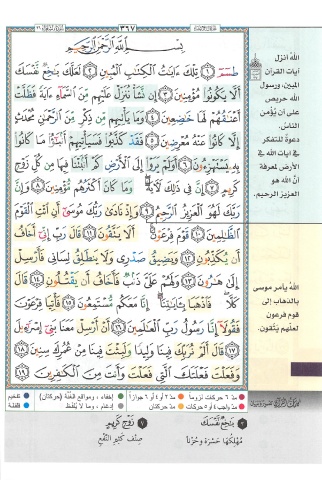 سورة الشعراء ٢٦
٣٦٧
بِسْمِ اللَّهِ الرَّحْمَٰنِ الرَّحِيمِ
طسٓمٓ ١ تِلْكَ ءَايَٰتُ الْكِتَٰبِ الْمُبِينِ ٢ لَعَلَّكَ بَٰخِعٌ نَّفْسَكَ
أَلَّا يَكُونُوا۟ مُؤْمِنِينَ ٣ إِن نَّشَأْ نُنَزِّلْ عَلَيْهِم مِّنَ السَّمَآءِ ءَايَةً فَظَلَّتْ
أَعْنَٰقُهُمْ لَهَا خَٰضِعِينَ ٤ وَمَا يَأْتِيهِم مِّن ذِكْرٍ مِّنَ الرَّحْمَٰنِ مُحْدَثٍ
إِلَّا كَانُوا۟ عَنْهُ مُعْرِضِينَ ٥ فَقَدْ كَذَّبُوا۟ فَسَيَأْتِيهِمْ أَنۢبَٰٓؤُا۟ مَا كَانُوا۟
بِهِۦ يَسْتَهْزِءُونَ ٦ أَوَلَمْ يَرَوْا۟ إِلَى الْأَرْضِ كَمْ أَنۢبَتْنَا فِيهَا مِن كُلِّ زَوْجٍ
كَرِيمٍ ٧ إِنَّ فِي ذَٰلِكَ لَءَايَةً وَمَا كَانَ أَكْثَرُهُم مُّؤْمِنِينَ ٨ وَإِنَّ
رَبَّكَ لَهُوَ الْعَزِيزُ الرَّحِيمُ ٩ وَإِذْ نَادَىٰ رَبُّكَ مُوسَىٰٓ أَنِ ائْتِ الْقَوْمَ
الظَّٰلِمِينَ ١٠ قَوْمَ فِرْعَوْنَ أَلَا يَتَّقُونَ ١١ قَالَ رَبِّ إِنِّيٓ أَخَافُ
أَن يُكَذِّبُونِ ١٢ وَيَضِيقُ صَدْرِي وَلَا يَنطَلِقُ لِسَانِي فَأَرْسِلْ
إِلَىٰ هَٰرُونَ ١٣ وَلَهُمْ عَلَيَّ ذَنۢبٌ فَأَخَافُ أَن يَقْتُلُونِ ١٤ قَالَ
كَلَّا فَاذْهَبَا بِـَٔايَٰتِنَآ إِنَّا مَعَكُم مُّسْتَمِعُونَ ١٥ فَأْتِيَا فِرْعَوْنَ
فَقُولَآ إِنَّا رَسُولُ رَبِّ الْعَٰلَمِينَ ١٦ أَنْ أَرْسِلْ مَعَنَا بَنِيٓ إِسْرَٰٓءِيلَ
١٧ قَالَ أَلَمْ نُرَبِّكَ فِينَا وَلِيدًا وَلَبِثْتَ فِينَا مِنْ عُمُرِكَ سِنِينَ ١٨
وَفَعَلْتَ فَعْلَتَكَ الَّتِي فَعَلْتَ وَأَنتَ مِنَ الْكَٰفِرِينَ ١٩
الله انزل
آيات القرآن
المبين، ورسول
الله حريص
على ان يؤمن
الناس.
دعوة للتفكر
في ايات الله في
الأرض لمعرفة
أن الله هو
العزيز الرحيم.
الله يأمر موسى
بالذهاب إلى
قوم فرعون
لعلهم يتقون.
مد ٦ حركات لزوماً مد ٢ أو ٤ أو ٦ جوازاً إخفاء، ومواقع الغنّة (حركتان) تفخيم
مد واجب ٤ أو ٥ حركات مد حركتان إدغام، وما لا يلفظ قلقلة
٣ بَاخِعٌ نَّفْسَكَ
مُهْلِكُهَا حَسْرَةً وحُزْناً
٧ زَوْجٍ كَرِيمٍ
صِنْفٍ كَثِيرِ النَّفْعِ